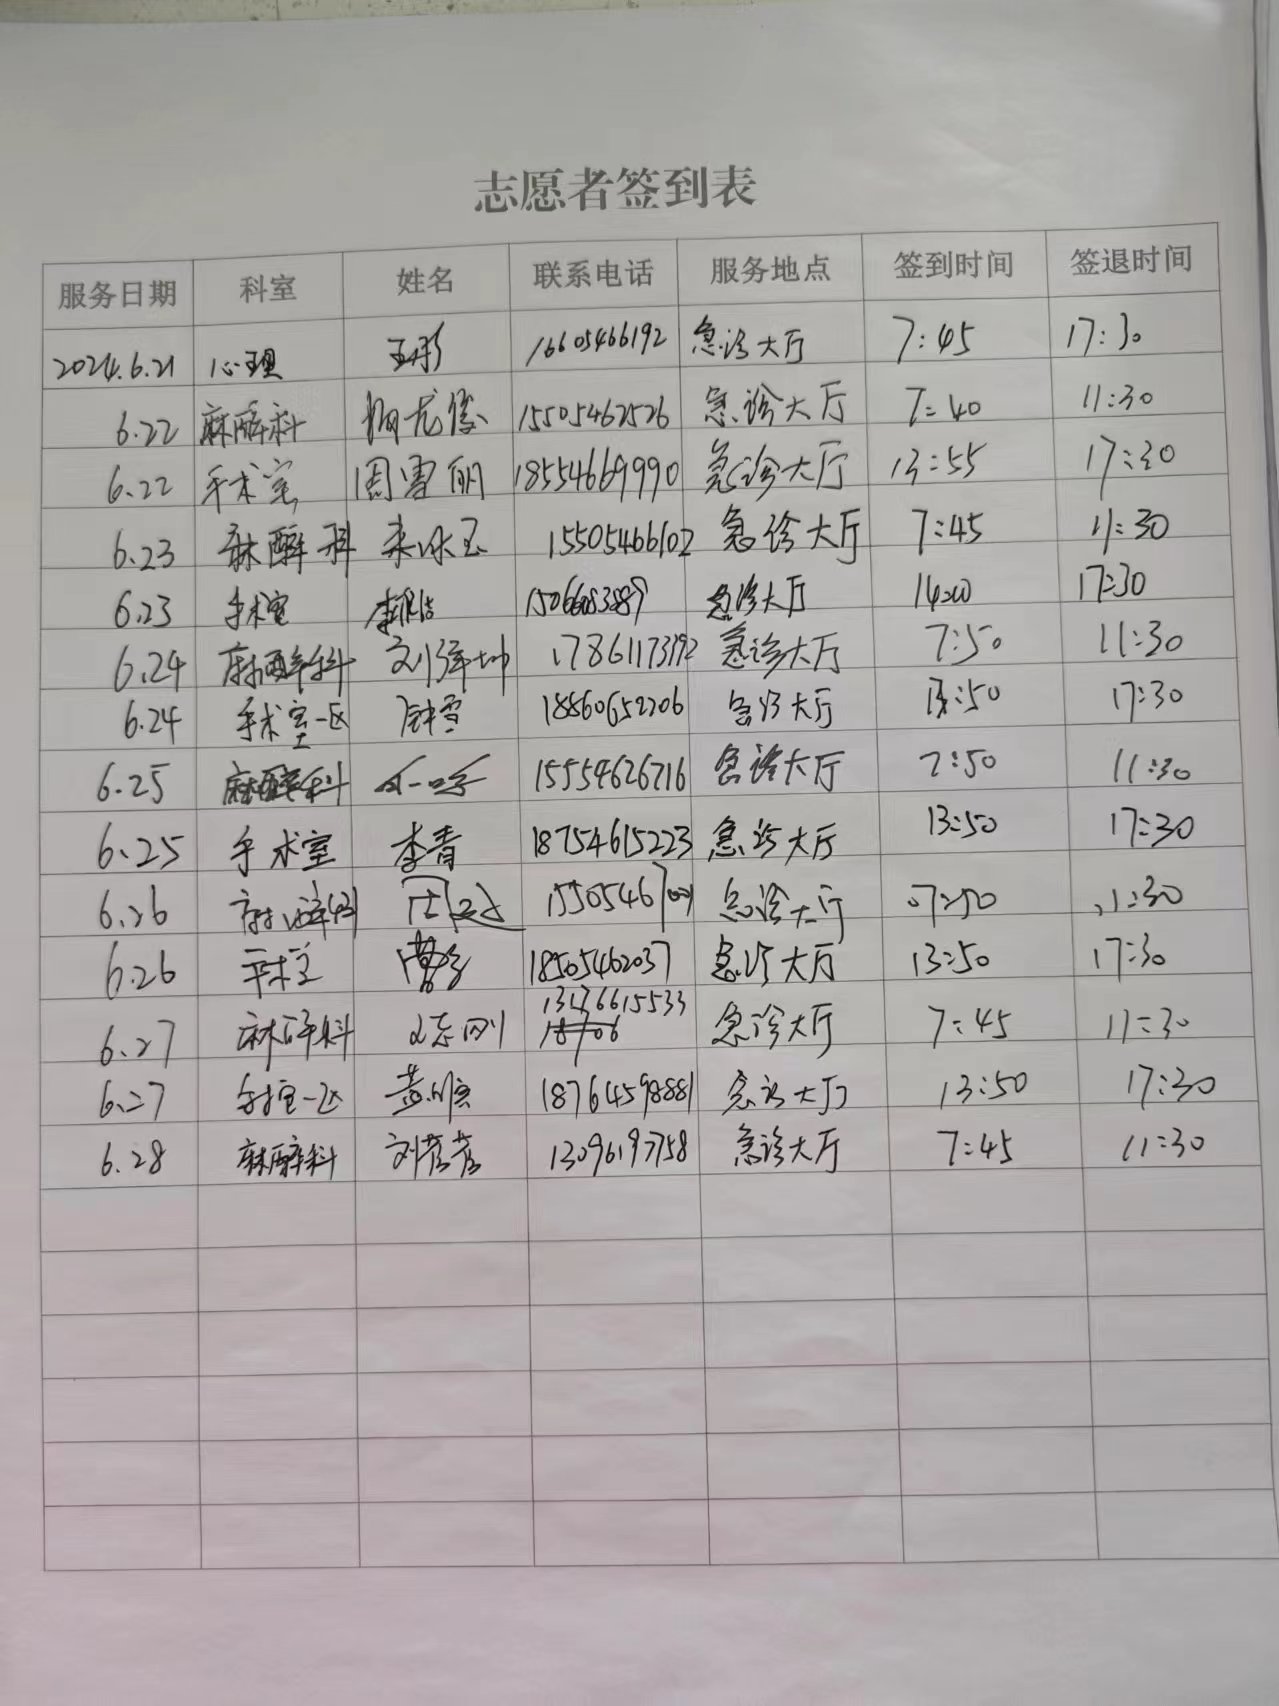 志愿者签到表
服务日期 科室 姓名 联系电话 服务地点 签到时间 签退时间
2024.6.21 心理 王彤 16605466192 急诊大厅 7:45 17:30
6.22 麻醉科 15505462526 急诊大厅 7:40 11:30
6.22 手术室 周雪丽 18554669990 急诊大厅 13:55 17:30
6.23 麻醉科 15505466102 急诊大厅 7:45 11:30
6.23 手术室 急诊大厅 14:00 17:30
6.24 麻醉科 17861173192 急诊大厅 7:50 11:30
6.24 手术室一区 18860652206 急诊大厅 13:50 17:30
6.25 麻醉科 15554626716 急诊大厅 7:50 11:30
6.25 手术室 李青 18754615223 急诊大厅 13:50 17:30
6.26 麻醉科 急诊大厅 07:50 11:30
6.26 手术室 18505462037 急诊大厅 13:50 17:30
6.27 麻醉科 急诊大厅 7:45 11:30
6.27 手术室一区 18764598881 急诊大厅 13:50 17:30
6.28 麻醉科 刘芳芳 急诊大厅 7:45 11:30